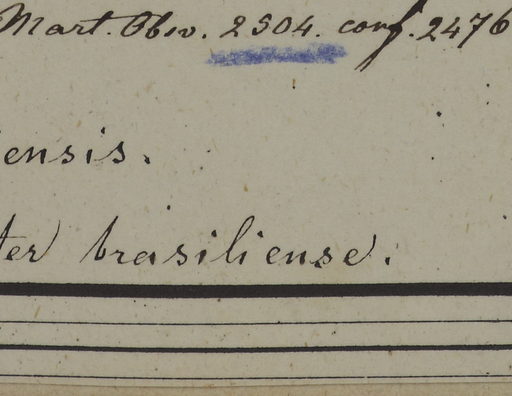 Mart. Obsv. 2504. conf. 2476
ensis.
ter brasiliense.